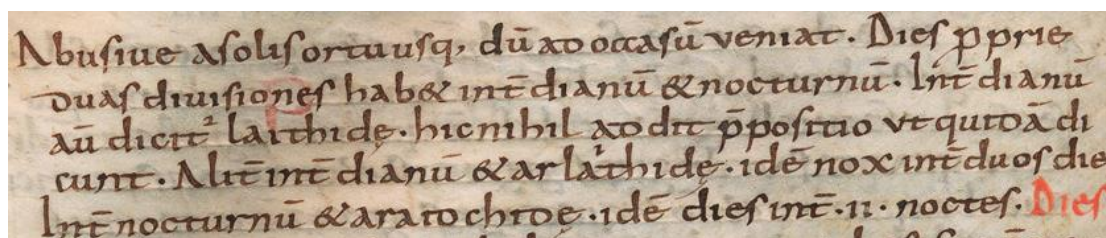 Abusiue asolisortuusq; dū ad occasū veniat. Dies p̄prie
duas diuisiones hab& int̄ dianū &nocturnū. Int̄ dianū
aū dicit᷒ laithidę. hicnihil addit p̄positio vt quidā di
cunt. Alit̄ int̄ dianū & ar laithidę. idē nox int̄ duos die
Int̄ nocturnū &aratochtdę. idē dies int̄ .ii. noctes. Dies